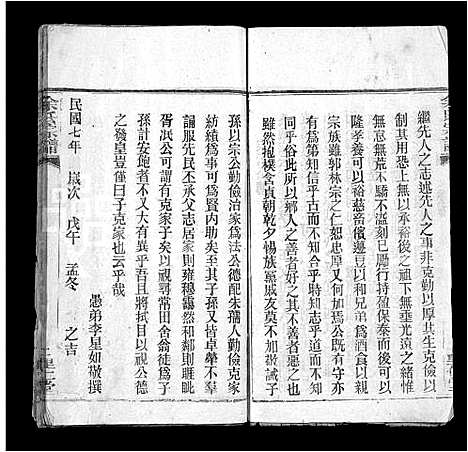 繼先人之志述先人之事非克勤以厚其生克儉以
制其用恐上無以承裕後之祖下無以垂光遠之緒惟
無怠無荒不驕不溢刻已屬行持盈保泰而後日積月
隆孝養可以裕慈蕾儐邊豆以和兄弟為酒食以燕
宗族雖郭林宗之仁恕忠厚又何加焉公既有守亦
有為第知信乎古而不知合乎時知止乎義而不知
偕乎俗此所以鄉人之善者好之其不善者惡之也
雖然抱樸含貞朝乾夕惕族黨戚友莫不加敬誡子
孫以宗公勤儉治家為法公德配朱孺人勤儉克家
紡績為事可為賢內助矣至其子孫又皆卓犖不羣
誦服先民丕承父志居家則雍穆靄然和鄰則睚眦
胥泯公可謂克家子矣以視尋常田舍翁徒為子孫
計安飽者不又大有異乎吾且將以視公德
之發皇豈僅曰子克家也云乎哉
民國七年 歲次 戊午 孟冬 之吉
愚弟李星如敬撰